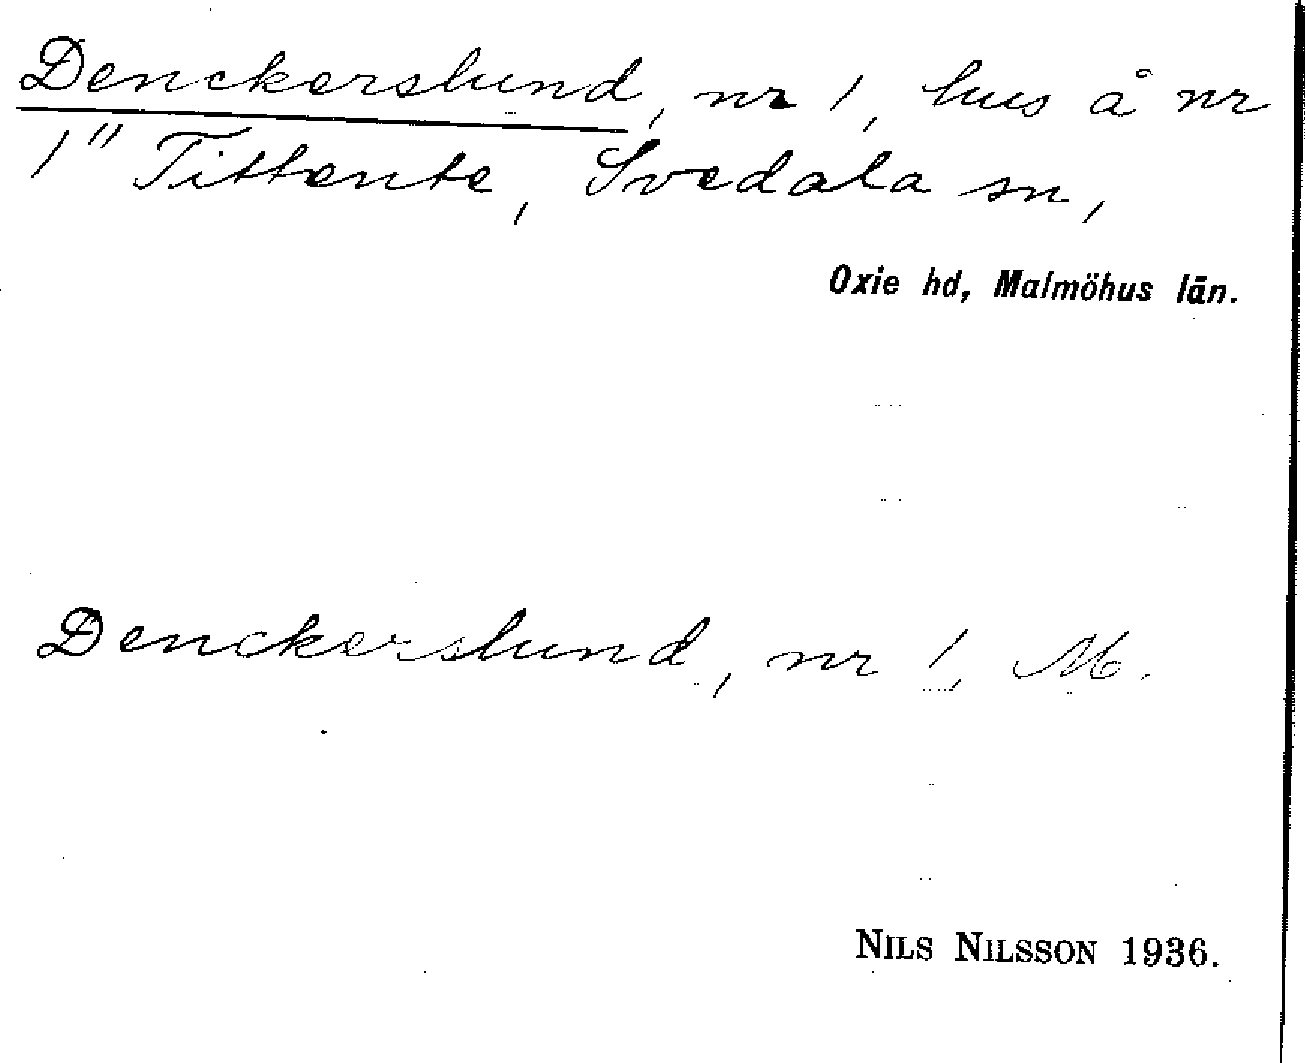 Denckerslund, nr 1, hus å nr
1" Tittente, Svedala sn,
Oxie hd, Malmöhus län.
Denckerslund, nr 1, M.
NILS NILSSON 1936.